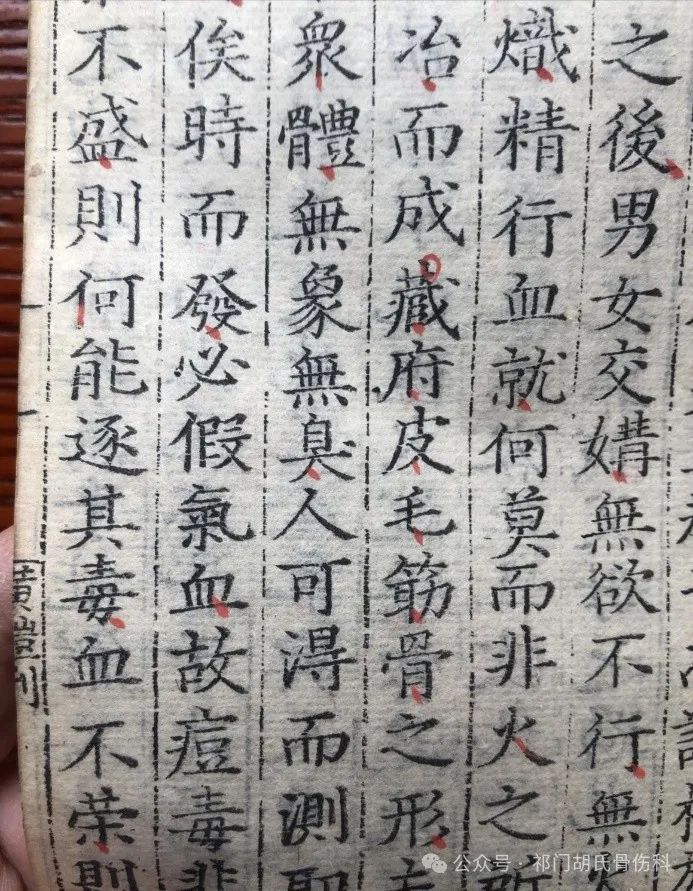 之後男女交媾無欲不行無
熾精行血就何莫而非火之
冶而成藏府皮毛筋骨之形
衆體無象無臭人可淂而測
俟時而發必假氣血故痘毒非
不盛則何能逐其毒血不荣則
公众号 · 祁门胡氏骨伤科